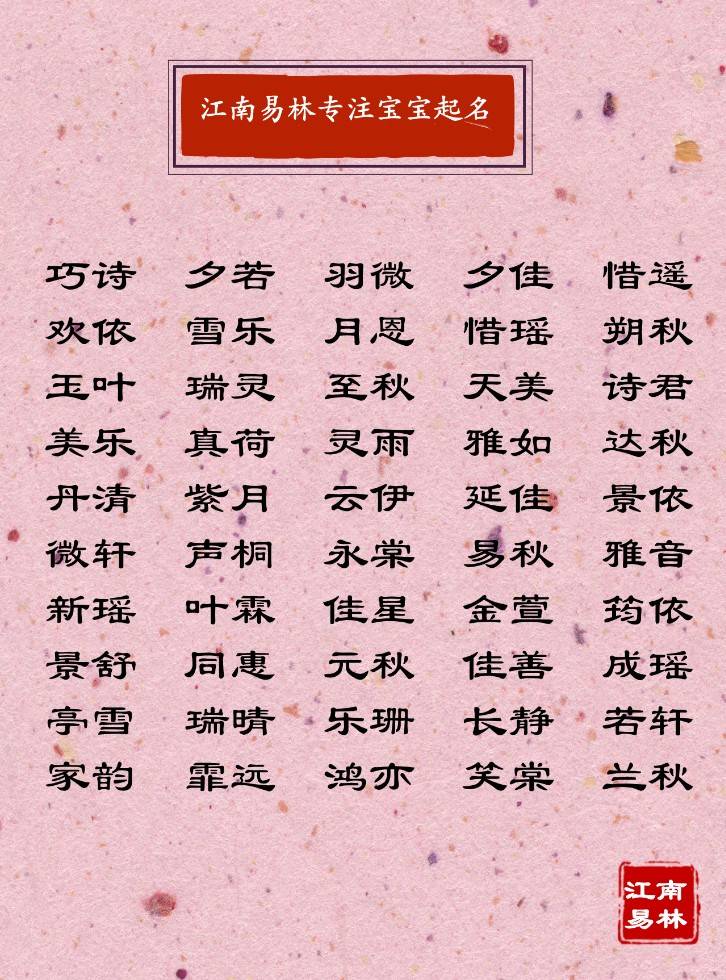 江南易林专注宝宝起名
巧诗 夕若 羽微 夕佳 惜遥
欢依 雪乐 月恩 惜瑶 朔秋
玉叶 瑞灵 至秋 天美 诗君
美乐 真荷 灵雨 雅如 达秋
丹清 紫月 云伊 延佳 景依
微轩 声桐 永棠 易秋 雅音
新瑶 叶霖 佳星 金萱 筠依
景舒 同惠 元秋 佳善 成瑶
亭雪 瑞晴 乐珊 长静 若轩
家韵 霏远 鸿亦 笑棠 兰秋
江南
易林